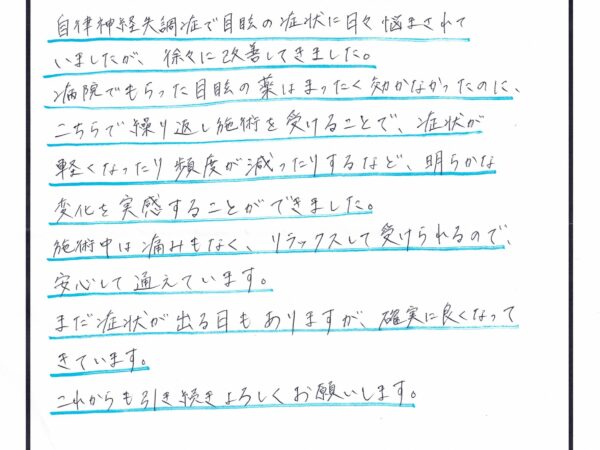 自律神経失調症で目眩の症状に日々悩まされて
いましたが、徐々に改善してきました。
病院でもらった目眩の薬はまったく効かなかったのに、
こちらで繰り返し施術を受けることで、症状が
軽くなったり頻度が減ったりするなど、明らかな
変化を実感することができました。
施術中は痛みもなく、リラックスして受けられるので、
安心して通えています。
まだ症状が出る日もありますが、確実に良くなって
きています。
これからも引き続きよろしくお願いします。